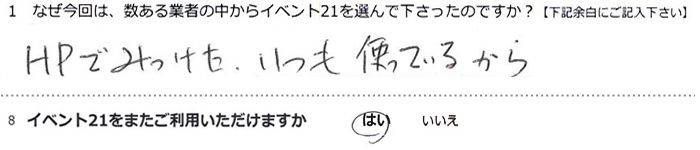 1 なぜ今回は、数ある業者の中からイベント21を選んで下さったのですか？【下記余白にご記入下さい】
HPでみつけた．いつも使っているから
8 イベント21をまたご利用いただけますか はい いいえ